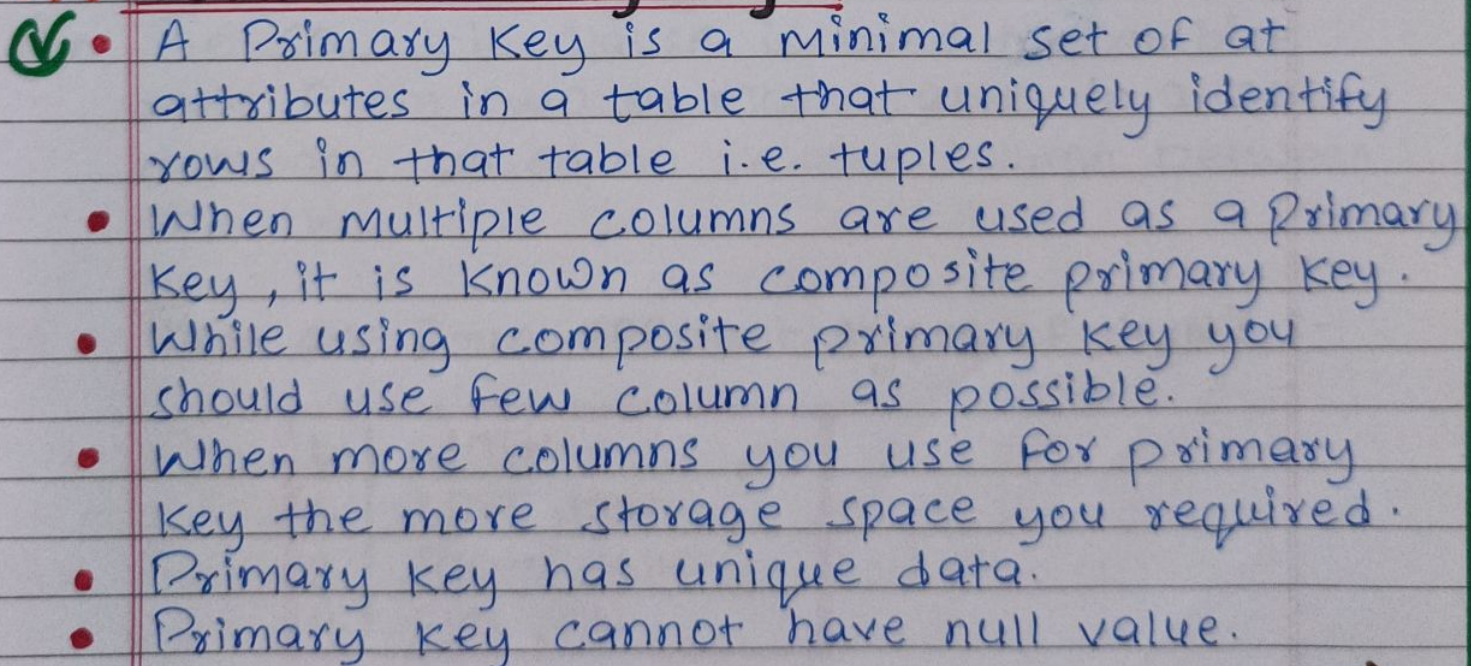 • A Primary Key is a minimal set of at
attributes in a table that uniquely identify
rows in that table i.e. tuples.
• When multiple columns are used as a Primary
Key, it is known as composite primary key.
• While using composite primary key you
should use few column as possible.
• When more columns you use for primary
key the more storage space you required.
• Primary key has unique data.
• Primary key cannot have null value.